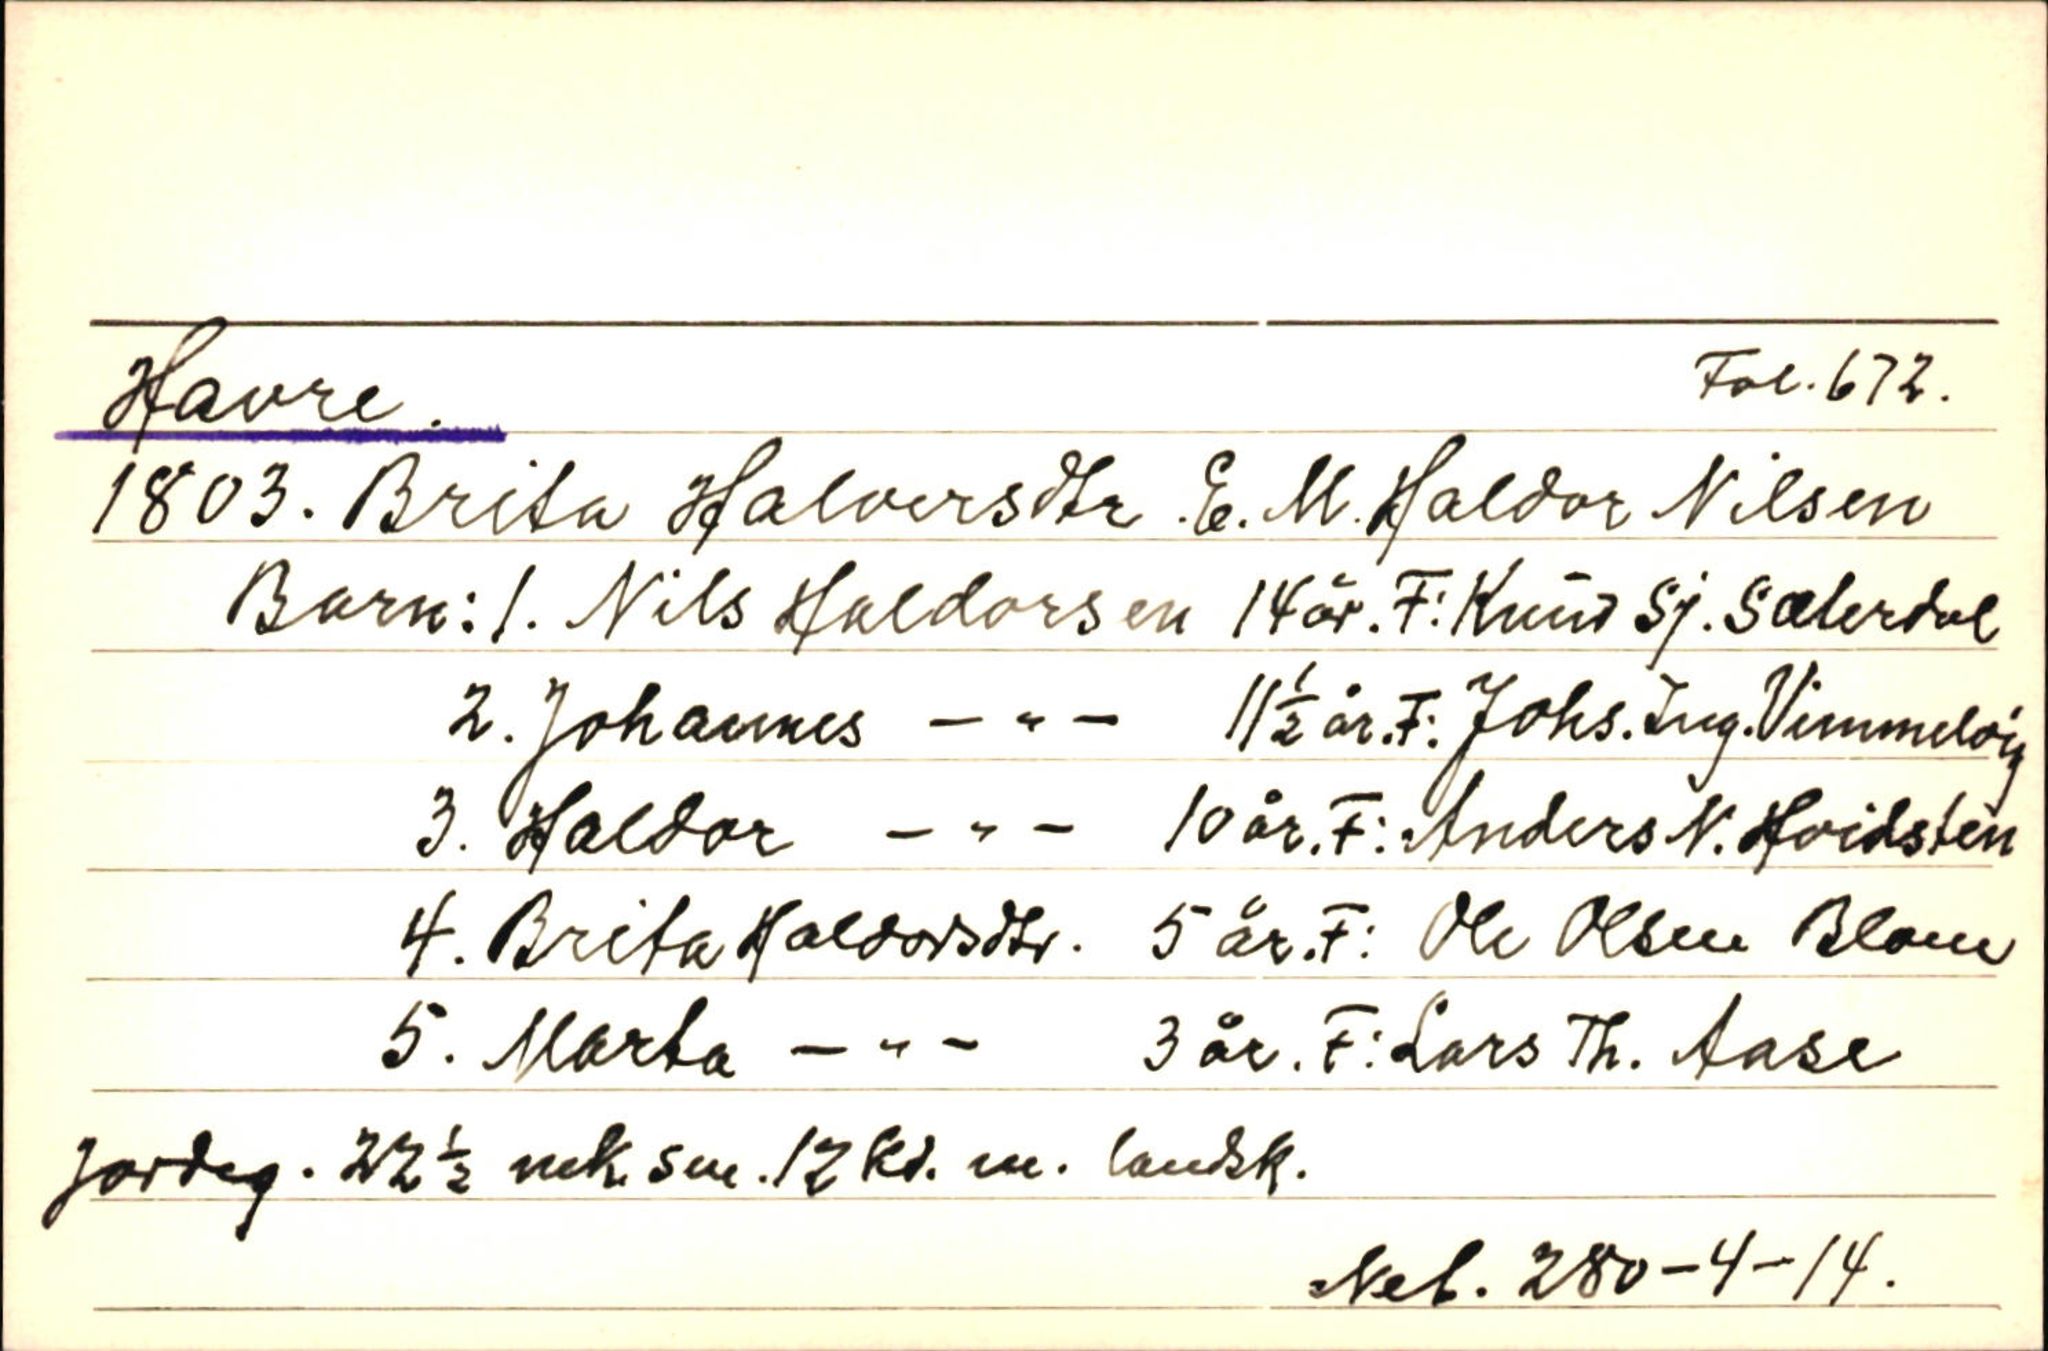 Havre. Fol. 672.
1803. Brita Halversdtr. E. M. Haldor Nilsen
Barn: 1. Nils Haldorsen 14 år. F: Knud Sj. Sælerdal
2. Johannes — " — 11 1/2 år. F: Johs. Ing. Vimmelvig
3. Haldor — " — 10 år. F: Anders N. Hvidsten
4. Brita Haldorsdtr. 5 år. F: Ole Olsen Blom
5. Marta — " — 3 år. F: Lars Th. Aase
Jordeg. 22 1/2 mk. sm. 12 kd. m. landsk.
Neb. 280-4-14.